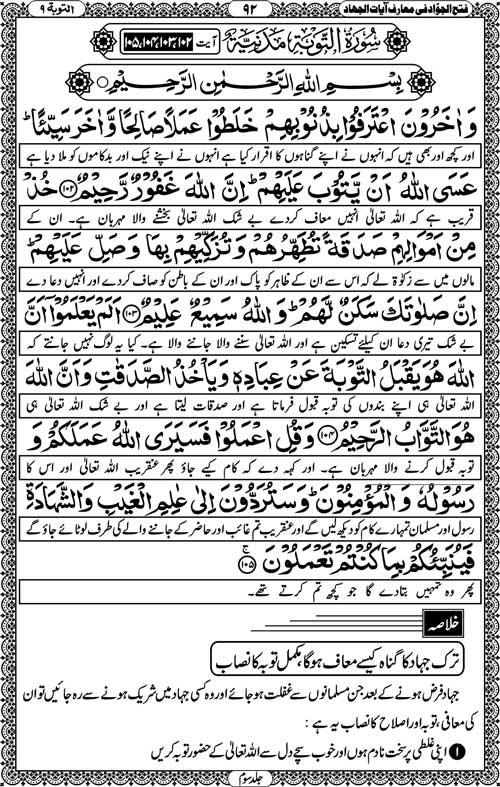 فتح الجوّاد فی معارف آیات الجهاد ۹۲ التوبة ۹
سُوْرَةُ التَّوْبَةِ مَدَنِيَّةٌ آیت ۱۰۲، ۱۰۳، ۱۰۴، ۱۰۵
بِسْمِ اللهِ الرَّحْمٰنِ الرَّحِيْمِ
وَاٰخَرُوْنَ اعْتَرَفُوْا بِذُنُوْبِهِمْ خَلَطُوْا عَمَلًا صَالِحًا وَّاٰخَرَ سَيِّئًا ؕ
اور کچھ اور بھی ہیں کہ انہوں نے اپنے گناہوں کا اقرار کیا ہے انہوں نے اپنے نیک اور بد کاموں کو ملا دیا ہے
عَسَى اللهُ اَنْ يَّتُوْبَ عَلَيْهِمْ ؕ اِنَّ اللهَ غَفُوْرٌ رَّحِيْمٌ ﴿۱۰۲﴾ خُذْ
قریب ہے کہ اللہ تعالیٰ انہیں معاف کردے بے شک اللہ تعالیٰ بخشنے والا مہربان ہے۔ ان کے
مِنْ اَمْوَالِهِمْ صَدَقَةً تُطَهِّرُهُمْ وَتُزَكِّيْهِمْ بِهَا وَصَلِّ عَلَيْهِمْ ؕ
مالوں میں سے زکوٰۃ لے کہ اس سے ان کے ظاہر کو پاک اور ان کے باطن کو صاف کردے اور انہیں دعا دے
اِنَّ صَلٰوتَكَ سَكَنٌ لَّهُمْ ؕ وَاللهُ سَمِيْعٌ عَلِيْمٌ ﴿۱۰۳﴾ اَلَمْ يَعْلَمُوْۤا اَنَّ
بے شک تیری دعا ان کیلئے تسکین ہے اور اللہ تعالیٰ سننے والا جاننے والا ہے۔ کیا یہ لوگ نہیں جانتے کہ
اللهَ هُوَ يَقْبَلُ التَّوْبَةَ عَنْ عِبَادِهٖ وَيَاْخُذُ الصَّدَقٰتِ وَاَنَّ اللهَ
اللہ تعالیٰ ہی اپنے بندوں کی توبہ قبول فرماتا ہے اور صدقات لیتا ہے اور بے شک اللہ تعالیٰ ہی
هُوَ التَّوَّابُ الرَّحِيْمُ ﴿۱۰۴﴾ وَقُلِ اعْمَلُوْا فَسَيَرَى اللهُ عَمَلَكُمْ وَ
توبہ قبول کرنے والا مہربان ہے۔ اور کہہ دے کہ کام کیے جاؤ پھر عنقریب اللہ تعالیٰ اور اس کا
رَسُوْلُهٗ وَالْمُؤْمِنُوْنَ ؕ وَسَتُرَدُّوْنَ اِلٰى عٰلِمِ الْغَيْبِ وَالشَّهَادَةِ
رسول اور مسلمان تمہارے کام کو دیکھ لیں گے اور عنقریب تم غائب اور حاضر کے جاننے والے کی طرف لوٹائے جاؤ گے
فَيُنَبِّئُكُمْ بِمَا كُنْتُمْ تَعْمَلُوْنَ ﴿۱۰۵﴾
پھر وہ تمہیں بتادے گا جو کچھ تم کرتے تھے۔
خلاصہ
ترک جہاد کا گناہ کیسے معاف ہوگا، مکمل توبہ کا نصاب
جہاد فرض ہونے کے بعد جن مسلمانوں سے غفلت ہوجائے اور وہ کسی جہاد میں شریک ہونے سے رہ جائیں تو ان
کی معافی، توبہ اور اصلاح کا نصاب یہ ہے:
۱ اپنی غلطی پر سخت نادم ہوں اور خوب سچے دل سے اللہ تعالیٰ کے حضور توبہ کریں
جلد سوم